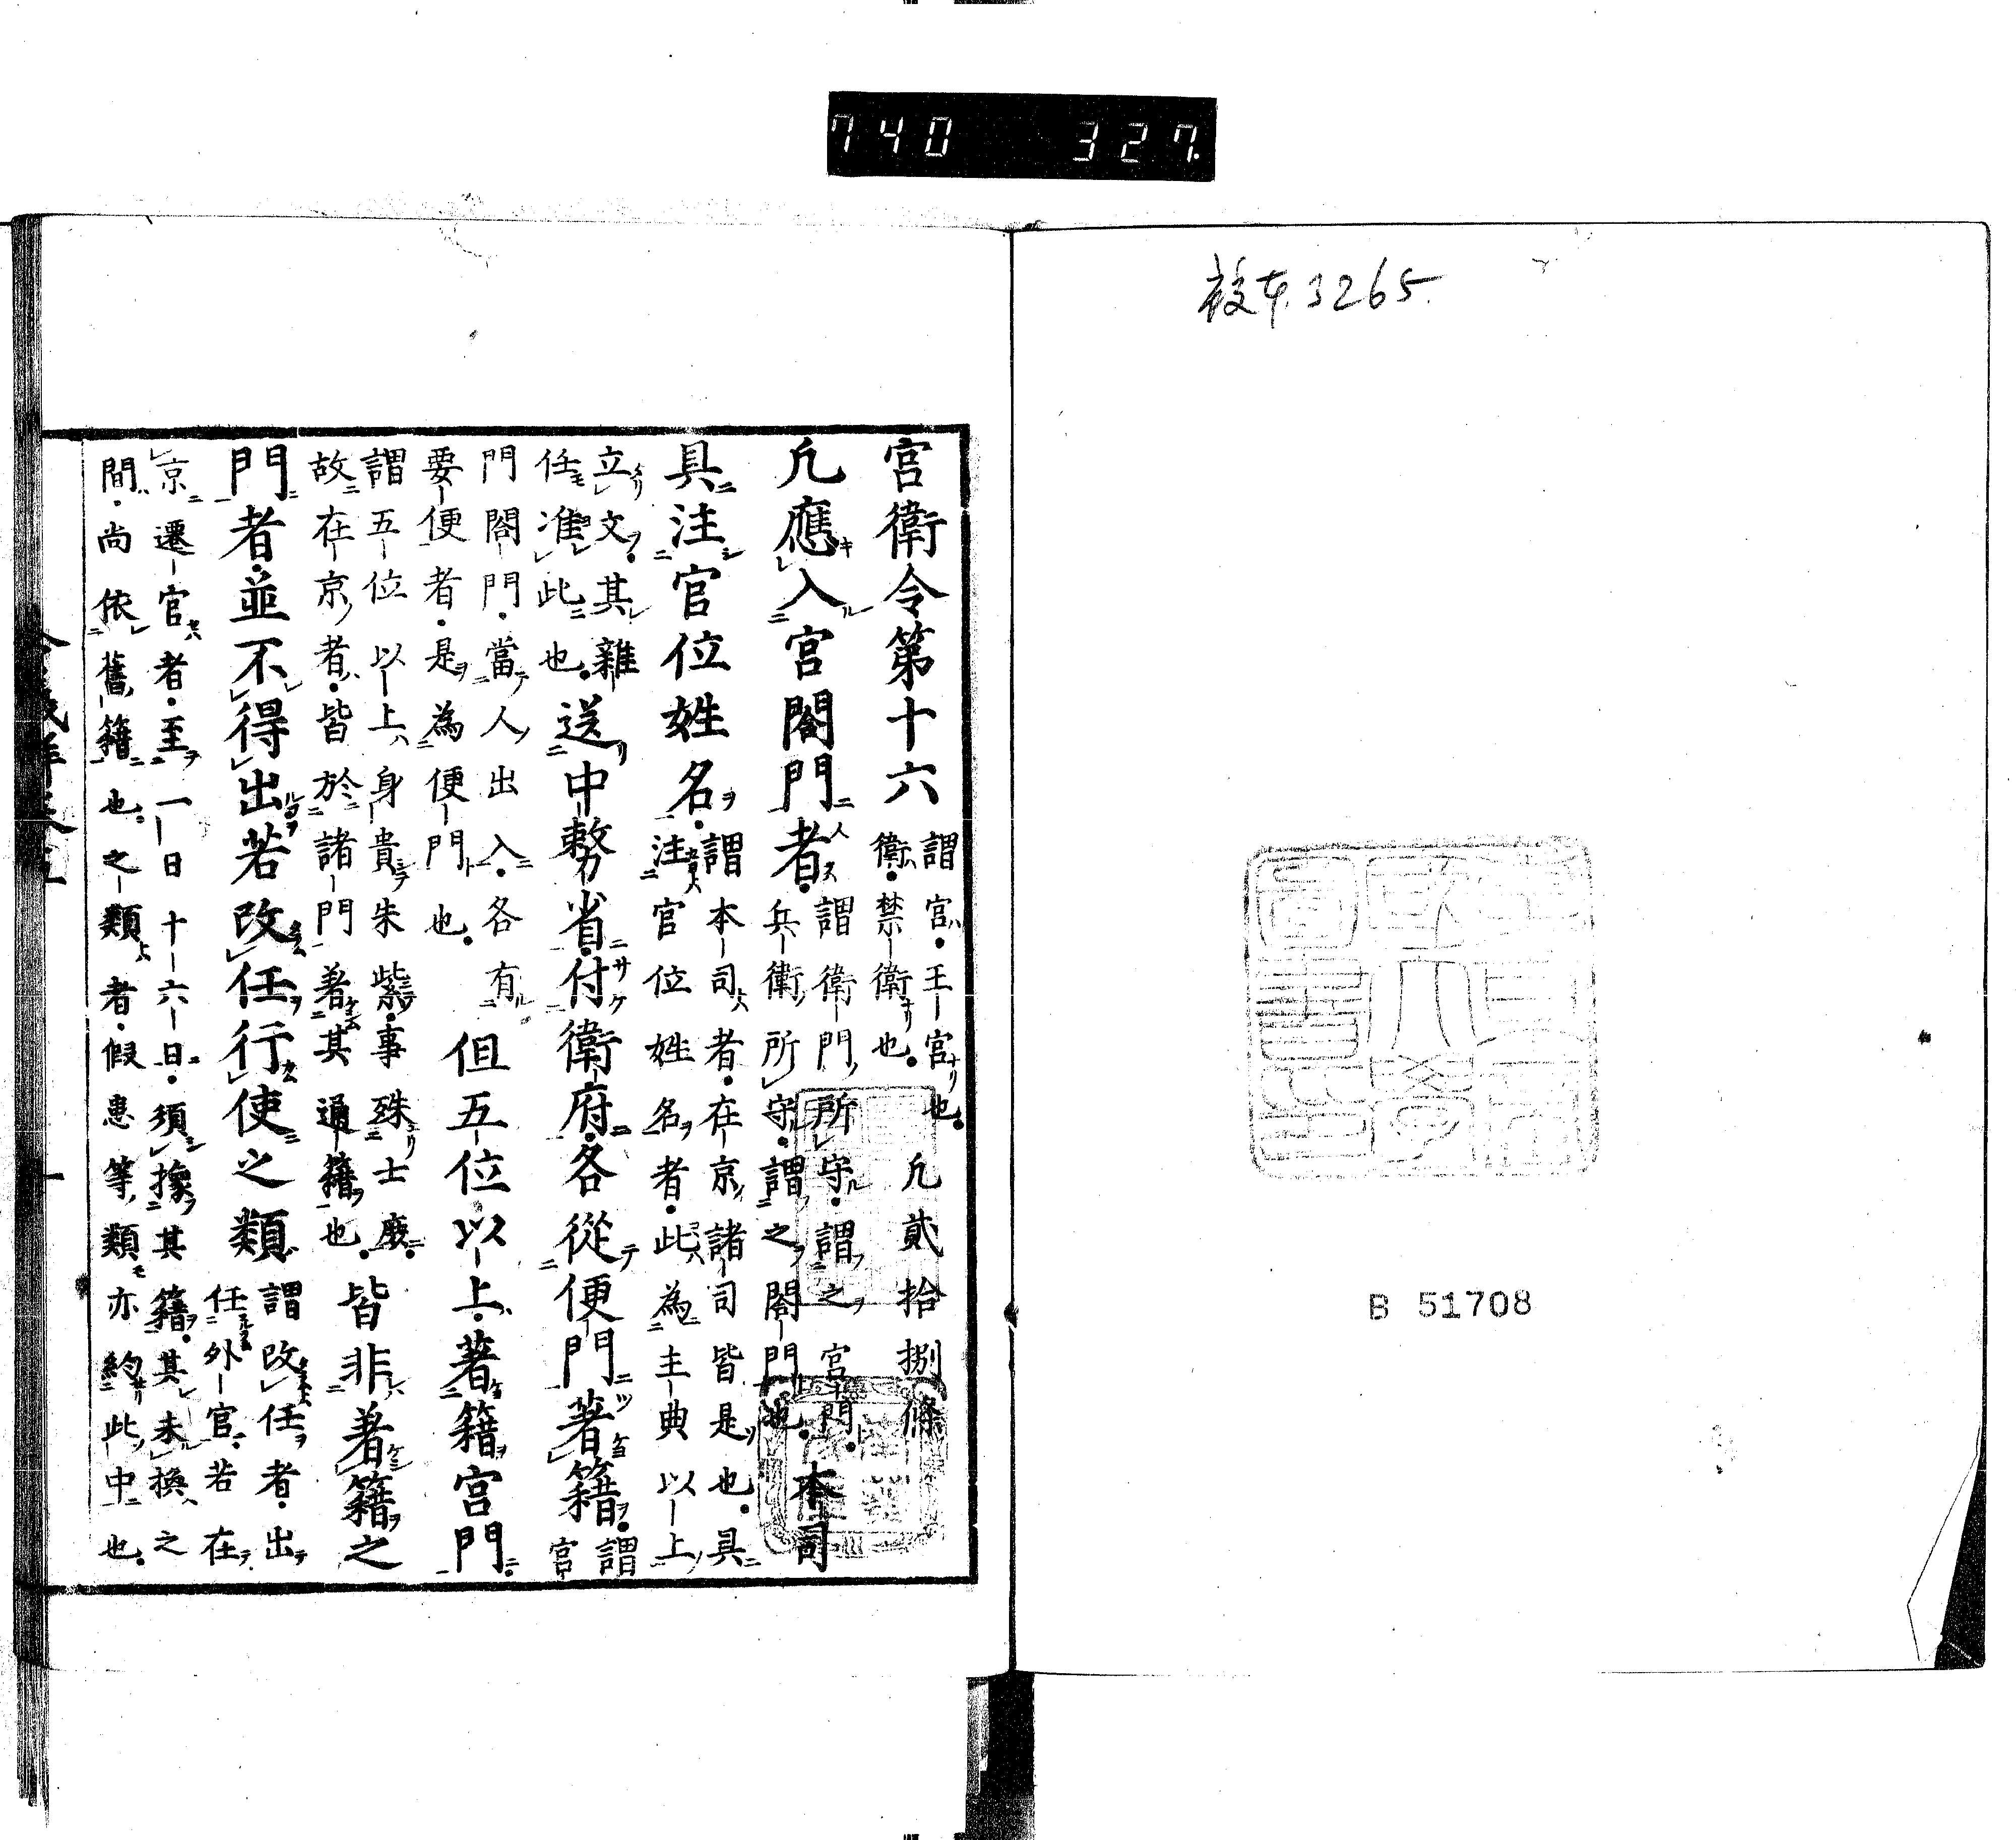 740 327.
校本3265.
B 51708
宮衛令第十六 謂宮、王宮也。衛、禁衛也。 凡貳拾捌條
凡應入宮閤門者。謂衛門所守。謂之宮門。兵衛所守。謂之閤門也。本司
具注官位姓名。謂本司者。在京諸司皆是也。具注官位姓名者。此為主典以上
立文。其雜任准此也。送中務省。付衛府。各從便門著籍。謂宮
門閤門。當人出入。各有要便者。是為便門也。但五位以上。著籍宮門
謂五位以上。身貴朱紫。事殊士庶。故在京者。皆於諸門著其通籍也。皆非著籍之
門者。並不得出若改任行使之類 謂改任者。出任外官。若在
京遷官者。至一日十六日。須據其籍。其未換之間。尚依舊籍也。之類者。假患等類亦約此中也。